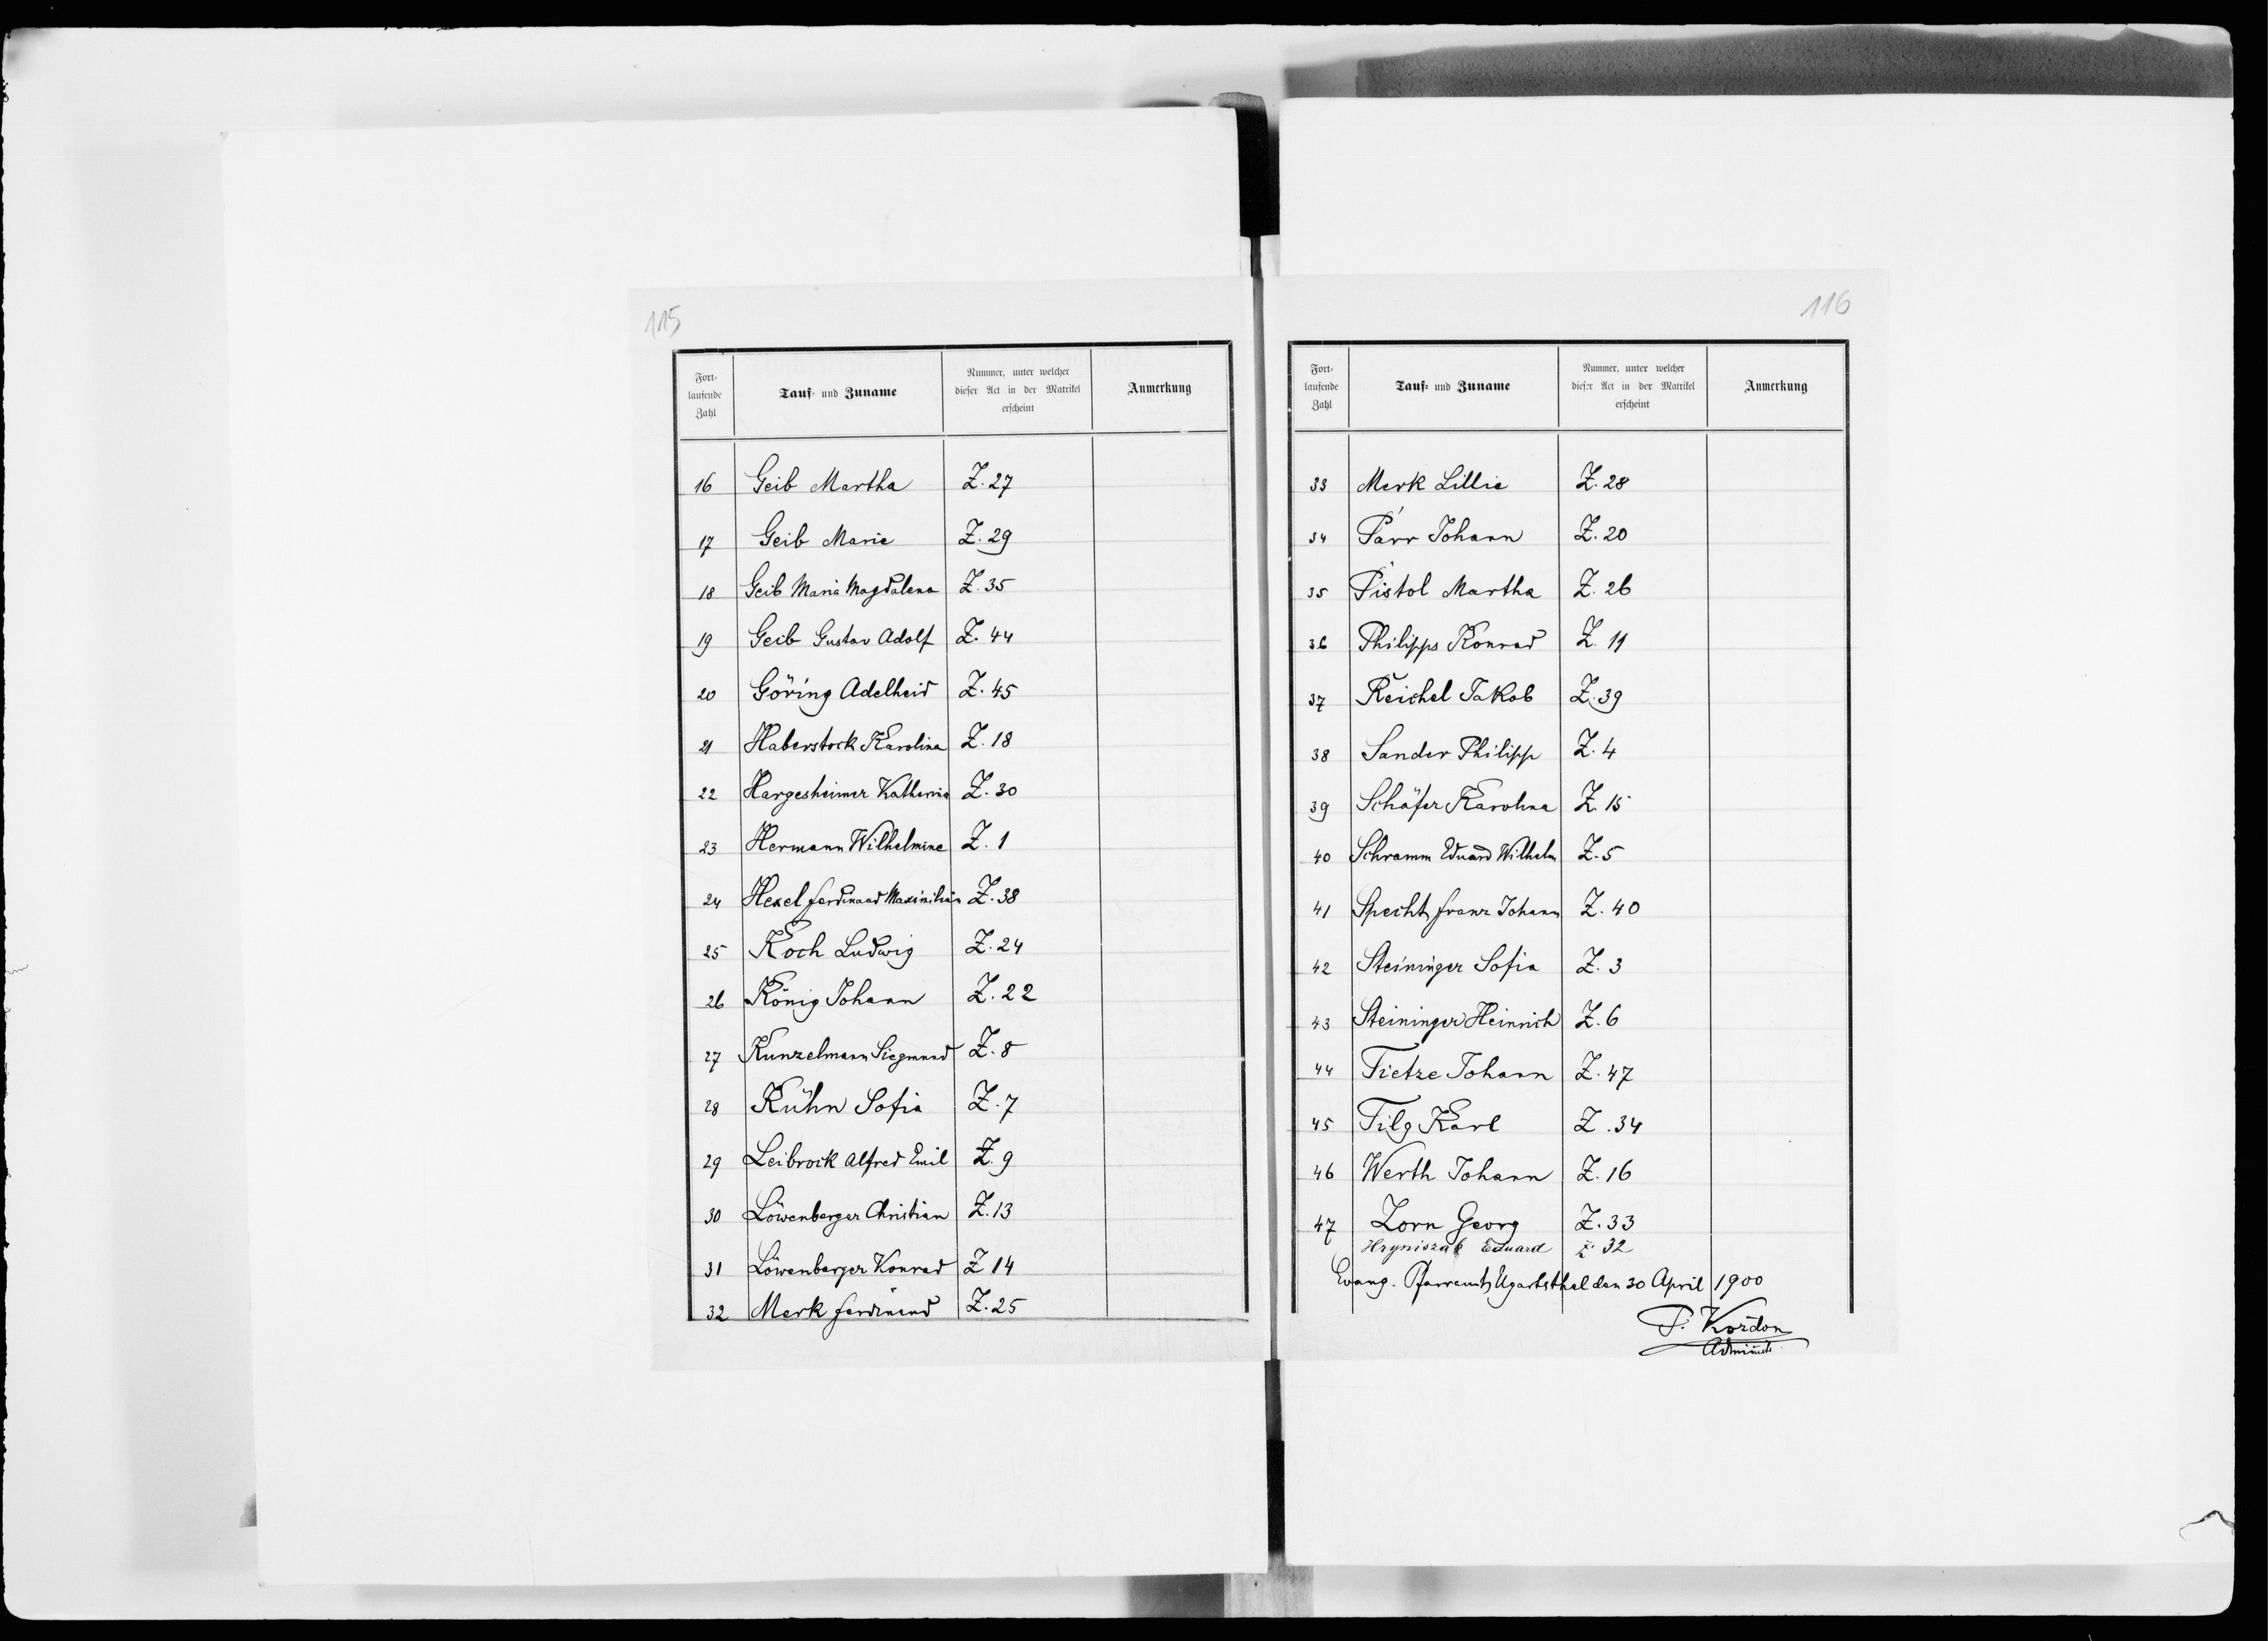 115
Fort-
laufende
Zahl
Tauf- und Zuname
Nummer, unter welcher
dieser Act in der Matrikel
erscheint
Anmerkung
16 Geib Martha Z. 27
17 Geib Marie Z. 29
18 Geib Maria Magdalena Z. 35
19 Geib Gustav Adolf Z. 44
20 Göring Adelheid Z. 45
21 Haberstock Karolina Z. 18
22 Hargesheimer Katherina Z. 30
23 Hermann Wilhelmine Z. 1
24 Hexel Ferdinand Maximilian Z. 38
25 Koch Ludwig Z. 24
26 König Johann Z. 22
27 Kunzelmann Siegmund Z. 8
28 Kühn Sofia Z. 7
29 Leibrock Alfred Emil Z. 9
30 Löwenberger Christian Z. 13
31 Löwenberger Konrad Z 14
32 Merk Ferdinand Z. 25
116
Fort-
laufende
Zahl
Tauf- und Zuname
Nummer, unter welcher
dieser Act in der Matrikel
erscheint
Anmerkung
33 Merk Lillie Z. 28
34 Parr Johann Z. 20
35 Pistol Martha Z. 26
36 Philipps Konrad Z. 11
37 Reichel Jakob Z. 39
38 Sander Philipp Z. 4
39 Schäfer Karolina Z. 15
40 Schramm Eduard Wilhelm Z. 5
41 Specht Franz Johann Z. 40
42 Steininger Sofia Z. 3
43 Steininger Heinrich Z. 6
44 Tietze Johann Z. 47
45 Tilg Karl Z. 34
46 Werth Johann Z. 16
47 Zorn Georg Z. 33
Hryniszak Eduard Z. 32
Evang. Pfarramt Ugartsthal den 30 April 1900
P. Kordon